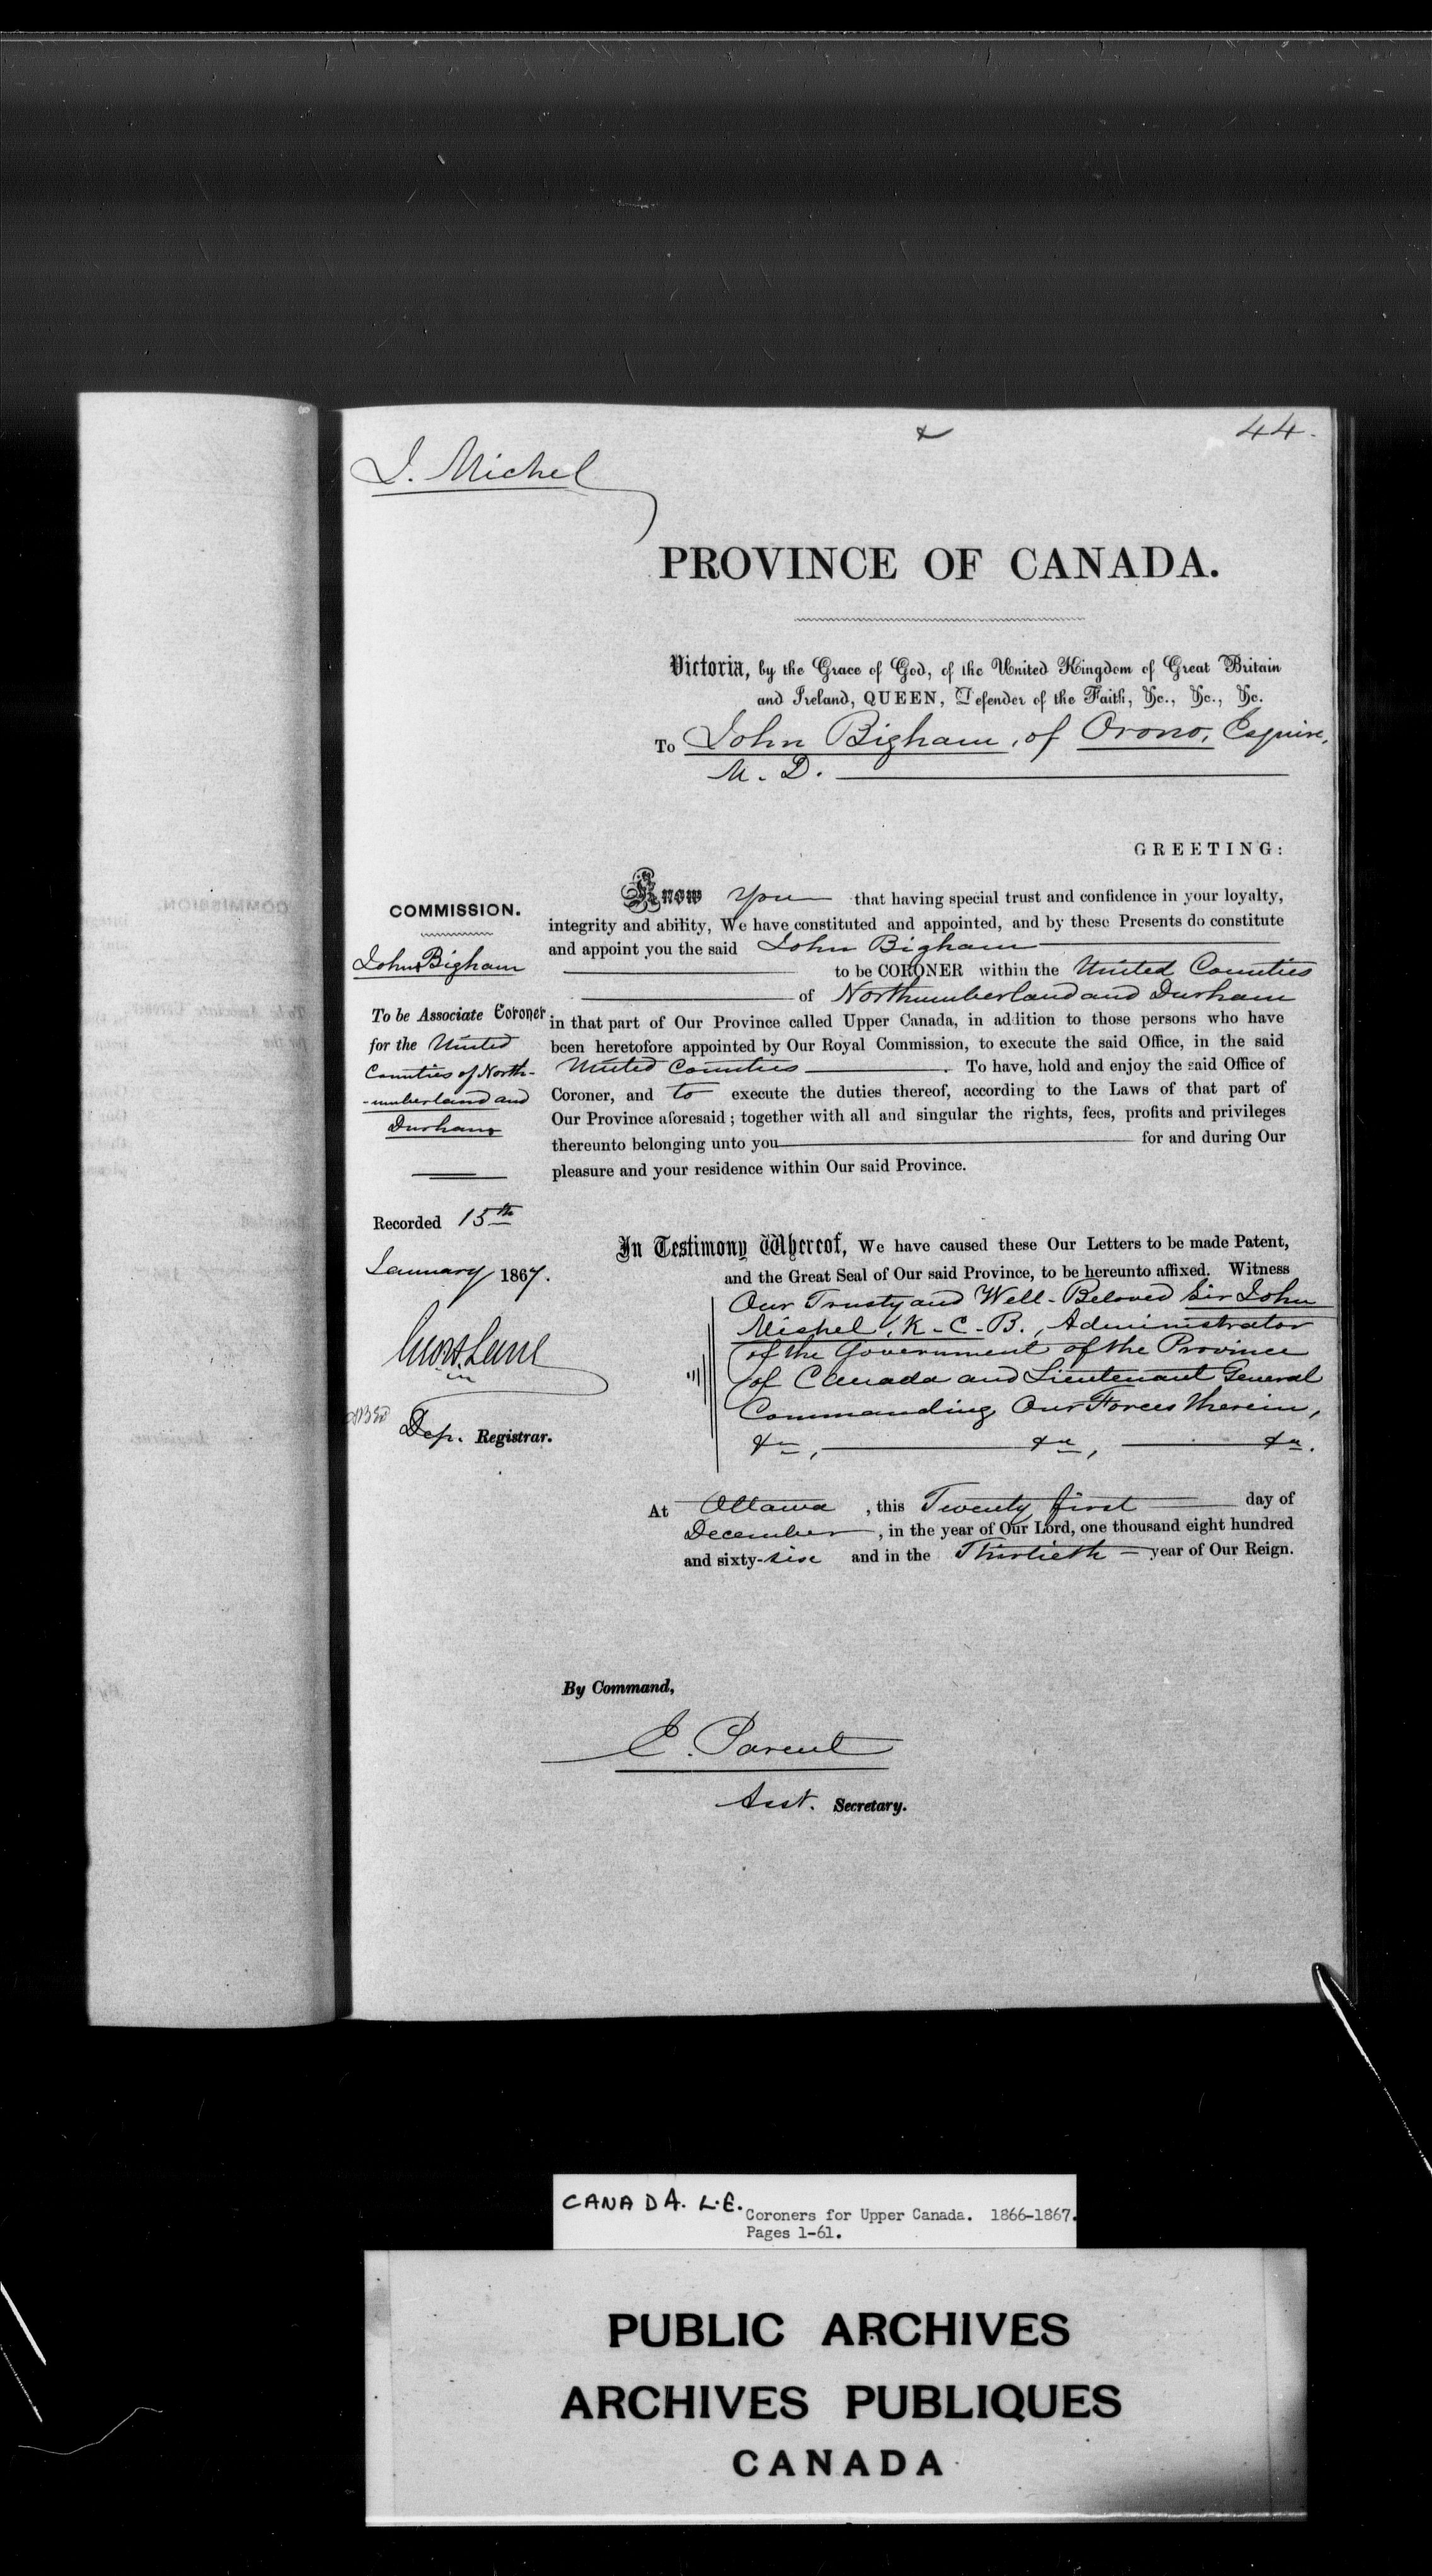 44.
J. Michel
PROVINCE OF CANADA.
Victoria, by the Grace of God, of the United Kingdom of Great Britain
and Ireland, QUEEN, Defender of the Faith, &c., &c., &c.
To John Bigham, of Orono, Esquire,
M. D.
GREETING:
Know You that having special trust and confidence in your loyalty,
integrity and ability, We have constituted and appointed, and by these Presents do constitute
and appoint you the said John Bigham
to be CORONER within the United Counties
of Northumberland and Durham
in that part of Our Province called Upper Canada, in addition to those persons who have
been heretofore appointed by Our Royal Commission, to execute the said Office, in the said
United Counties. To have, hold and enjoy the said Office of
Coroner, and to execute the duties thereof, according to the Laws of that part of
Our Province aforesaid; together with all and singular the rights, fees, profits and privileges
thereunto belonging unto you for and during Our
pleasure and your residence within Our said Province.
COMMISSION.
John Bigham
To be Associate Coroner
for the United
Counties of North-
-umberland and
Durham
Recorded 15th
January 1867.
Dep. Registrar.
In Testimony Whereof, We have caused these Our Letters to be made Patent,
and the Great Seal of Our said Province, to be hereunto affixed. Witness
Our Trusty and Well-Beloved Sir John
Michel, K.C.B., Administrator
of the Government of the Province
of Canada and Lieutenant General
Commanding Our Forces therein,
&a, &a, &a.
At Ottawa, this Twenty first day of
December, in the year of Our Lord, one thousand eight hundred
and sixty-six and in the Thirtieth year of Our Reign.
By Command,
E. Parent
Asst. Secretary.
CANADA. L.E. Coroners for Upper Canada. 1866-1867.
Pages 1-61.
PUBLIC ARCHIVES
ARCHIVES PUBLIQUES
CANADA